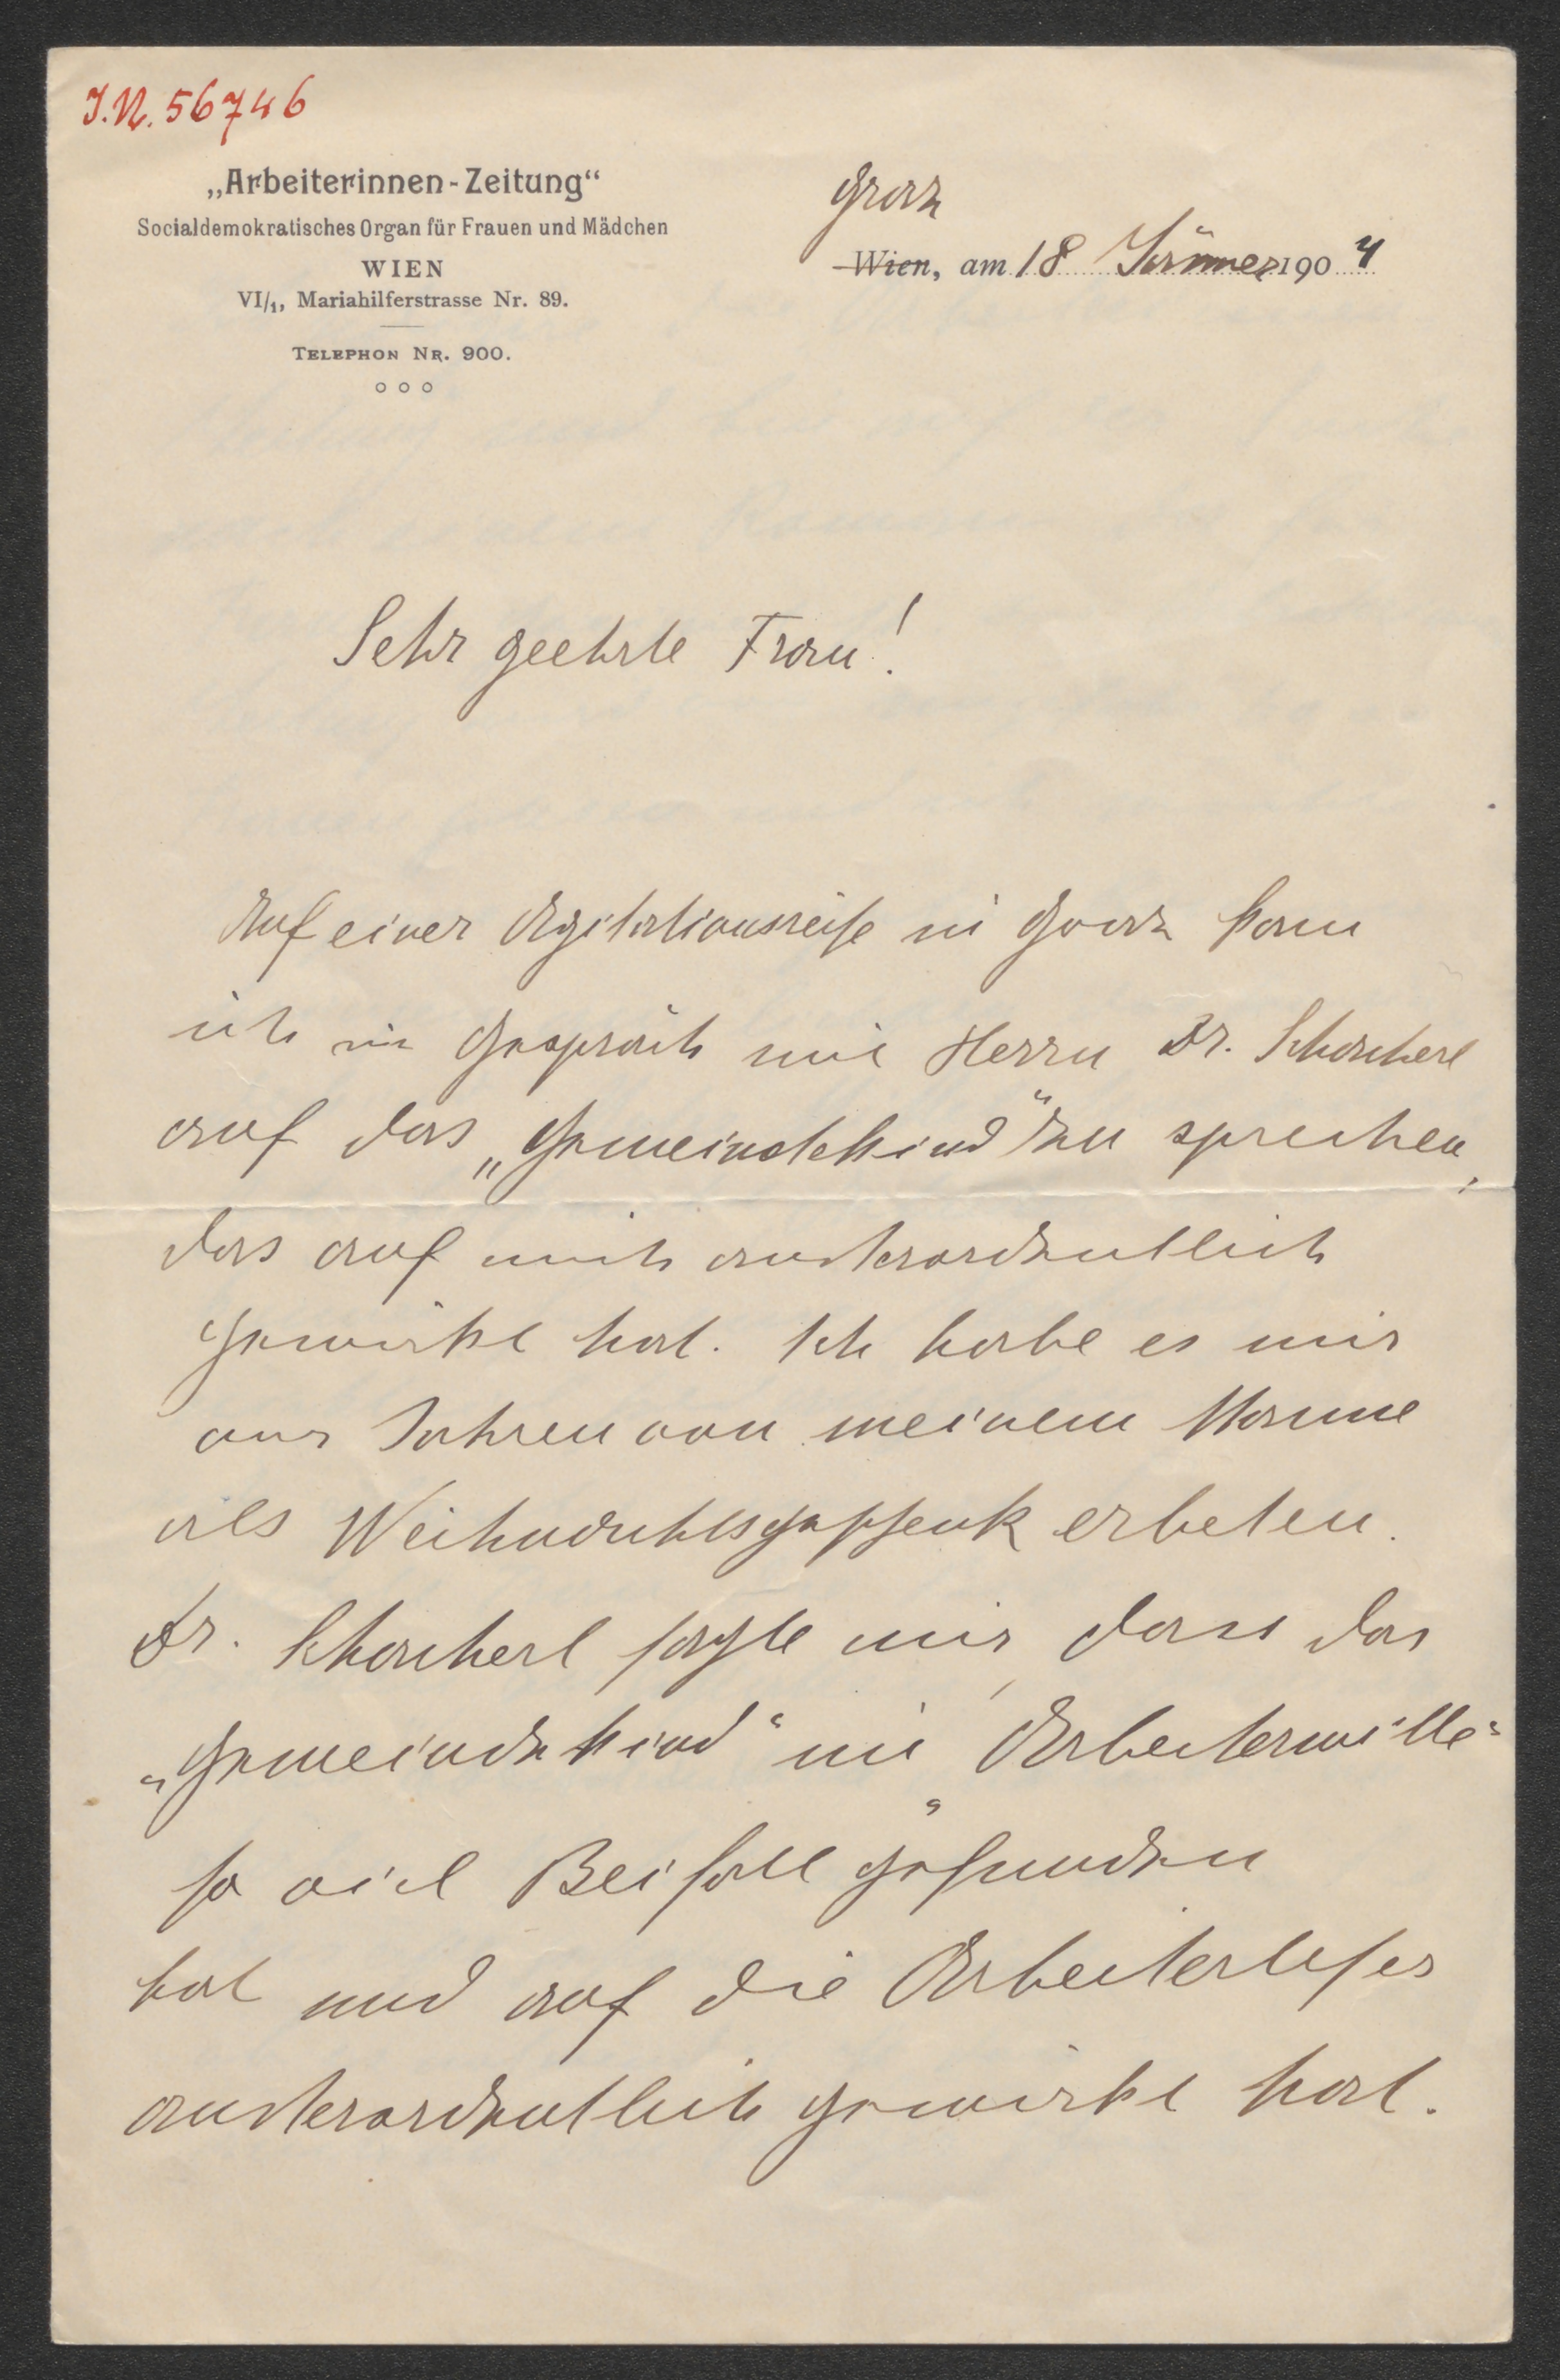 J.N. 56746
„Arbeiterinnen-Zeitung“
Socialdemokratisches Organ für Frauen und Mädchen
WIEN
VI/1, Mariahilferstrasse Nr. 89.
TELEPHON NR. 900.
Graz
Wien, am 18 Jänner 1904
Sehr geehrte Frau!
Auf einer Agitationsreise in Graz kam
ich im Gespräch mit Herrn Dr. Schacherl
auf das „Gemeindekind“ zu sprechen,
das auf mich austerordentlich
gewirkt hat. Ich habe es mir
vor Jahren von meinem Manne
als Weihnachtsgeschenk erbeten.
Dr. Schacherl sagte mir, dass das
„Gemeindekind“ im „Arbeiterwille“
so viel Beifall gefunden
hat und auf die Arbeiterleser
austerordentlich gewirkt hat.